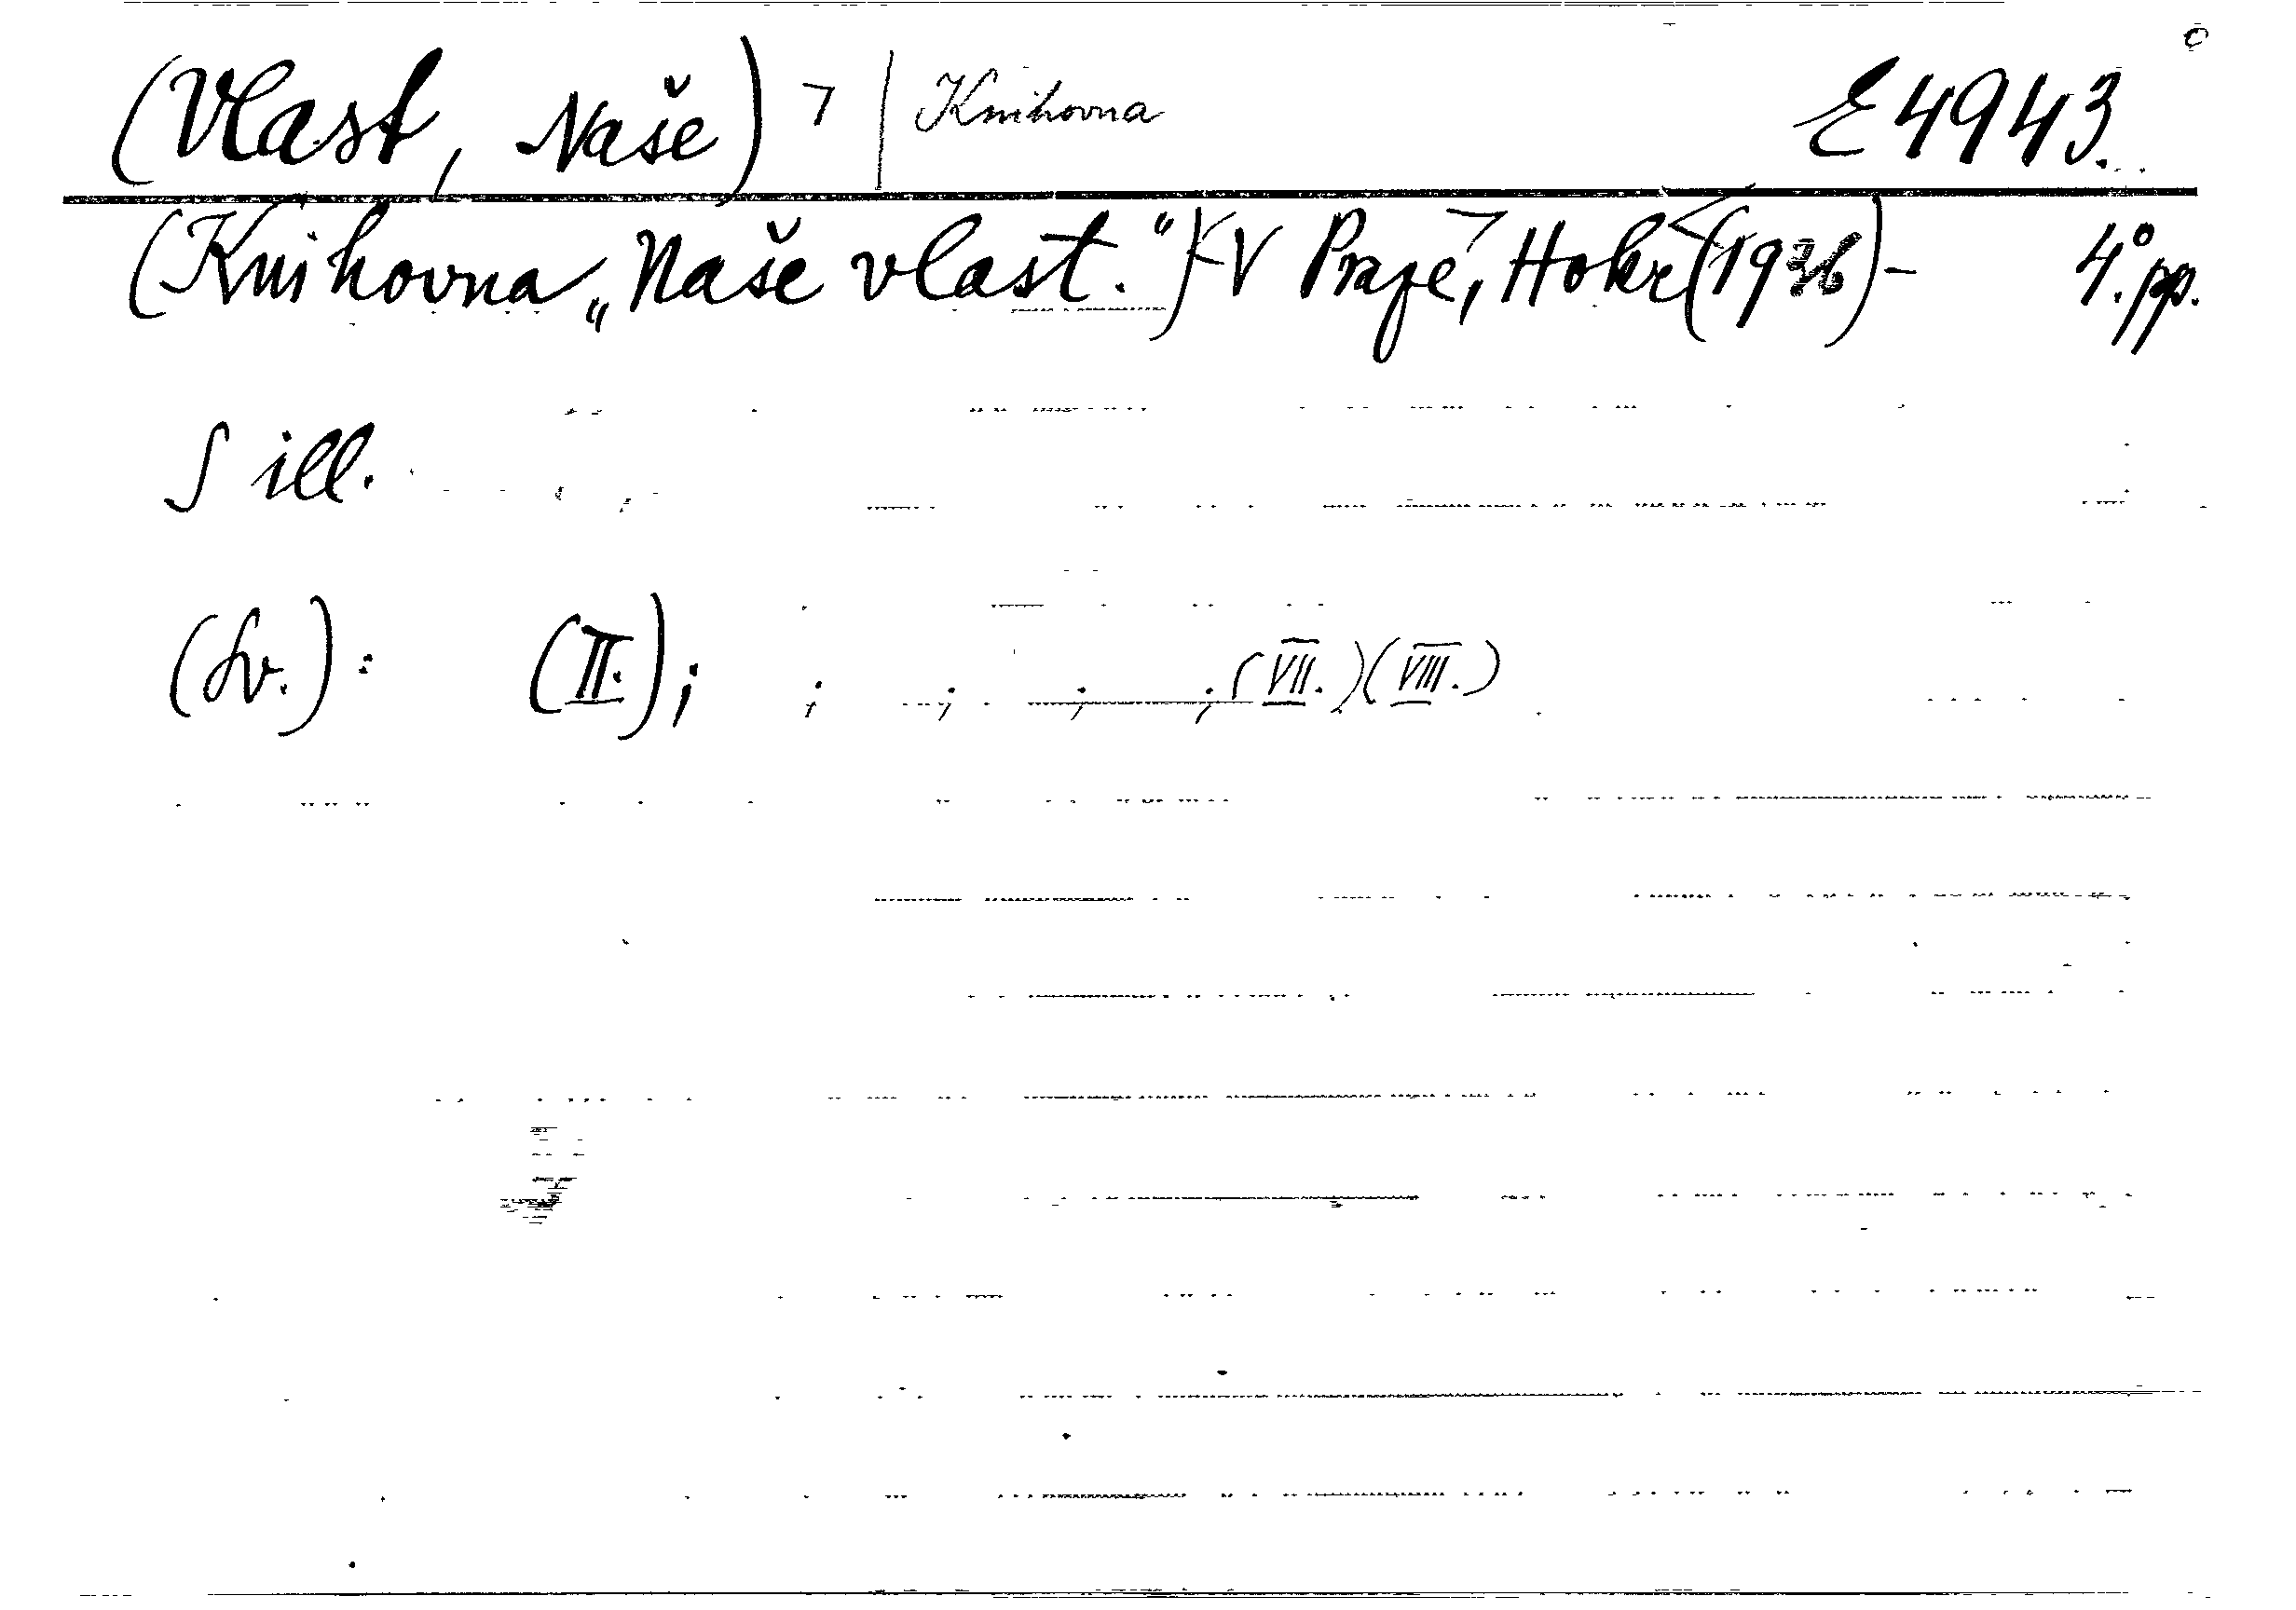 (Vlast, Naše) ¬ | Knihovna E 4943.
(Knihovna „Naše vlast.“) V Praze, Hokr (1936)- 4°. pp.
S ill.
(Sv.): (II.); ; ; ; ; (VII.) (VIII.)